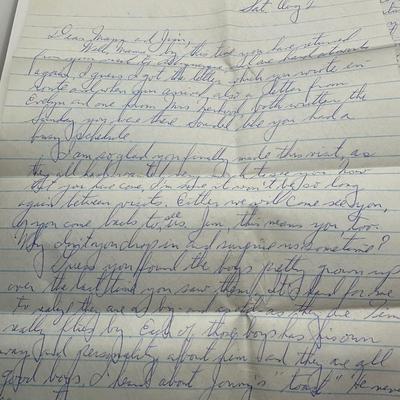 Sat. Aug 2
Dear Mom and Jim,
Well Mom, by this time you have returned
from your visit to and are hard at work
again. I guess I got the letter which you wrote en-
route and when Jim arrived also a letter from
Evelyn and one from Mrs. both written the
Sunday you were there. Sounded like you had a
busy schedule.
I am so glad you finally made this visit, as
they all had waited very long to see you. Now
that you have gone, I'm sure it won't be so long
again between visits. Either we will come see you,
or you come back to see us. Jim, this means you, too.
Why don't you drop in and surprise us sometime?
I guess you found the boys pretty grown up
over the last time you saw them. It's hard for me
to realize they are as big and as old as they are. Time
really flies by. Each of those boys has his own
way and personality about him and they are all
good boys. I heard about Jonny's "toast". He never